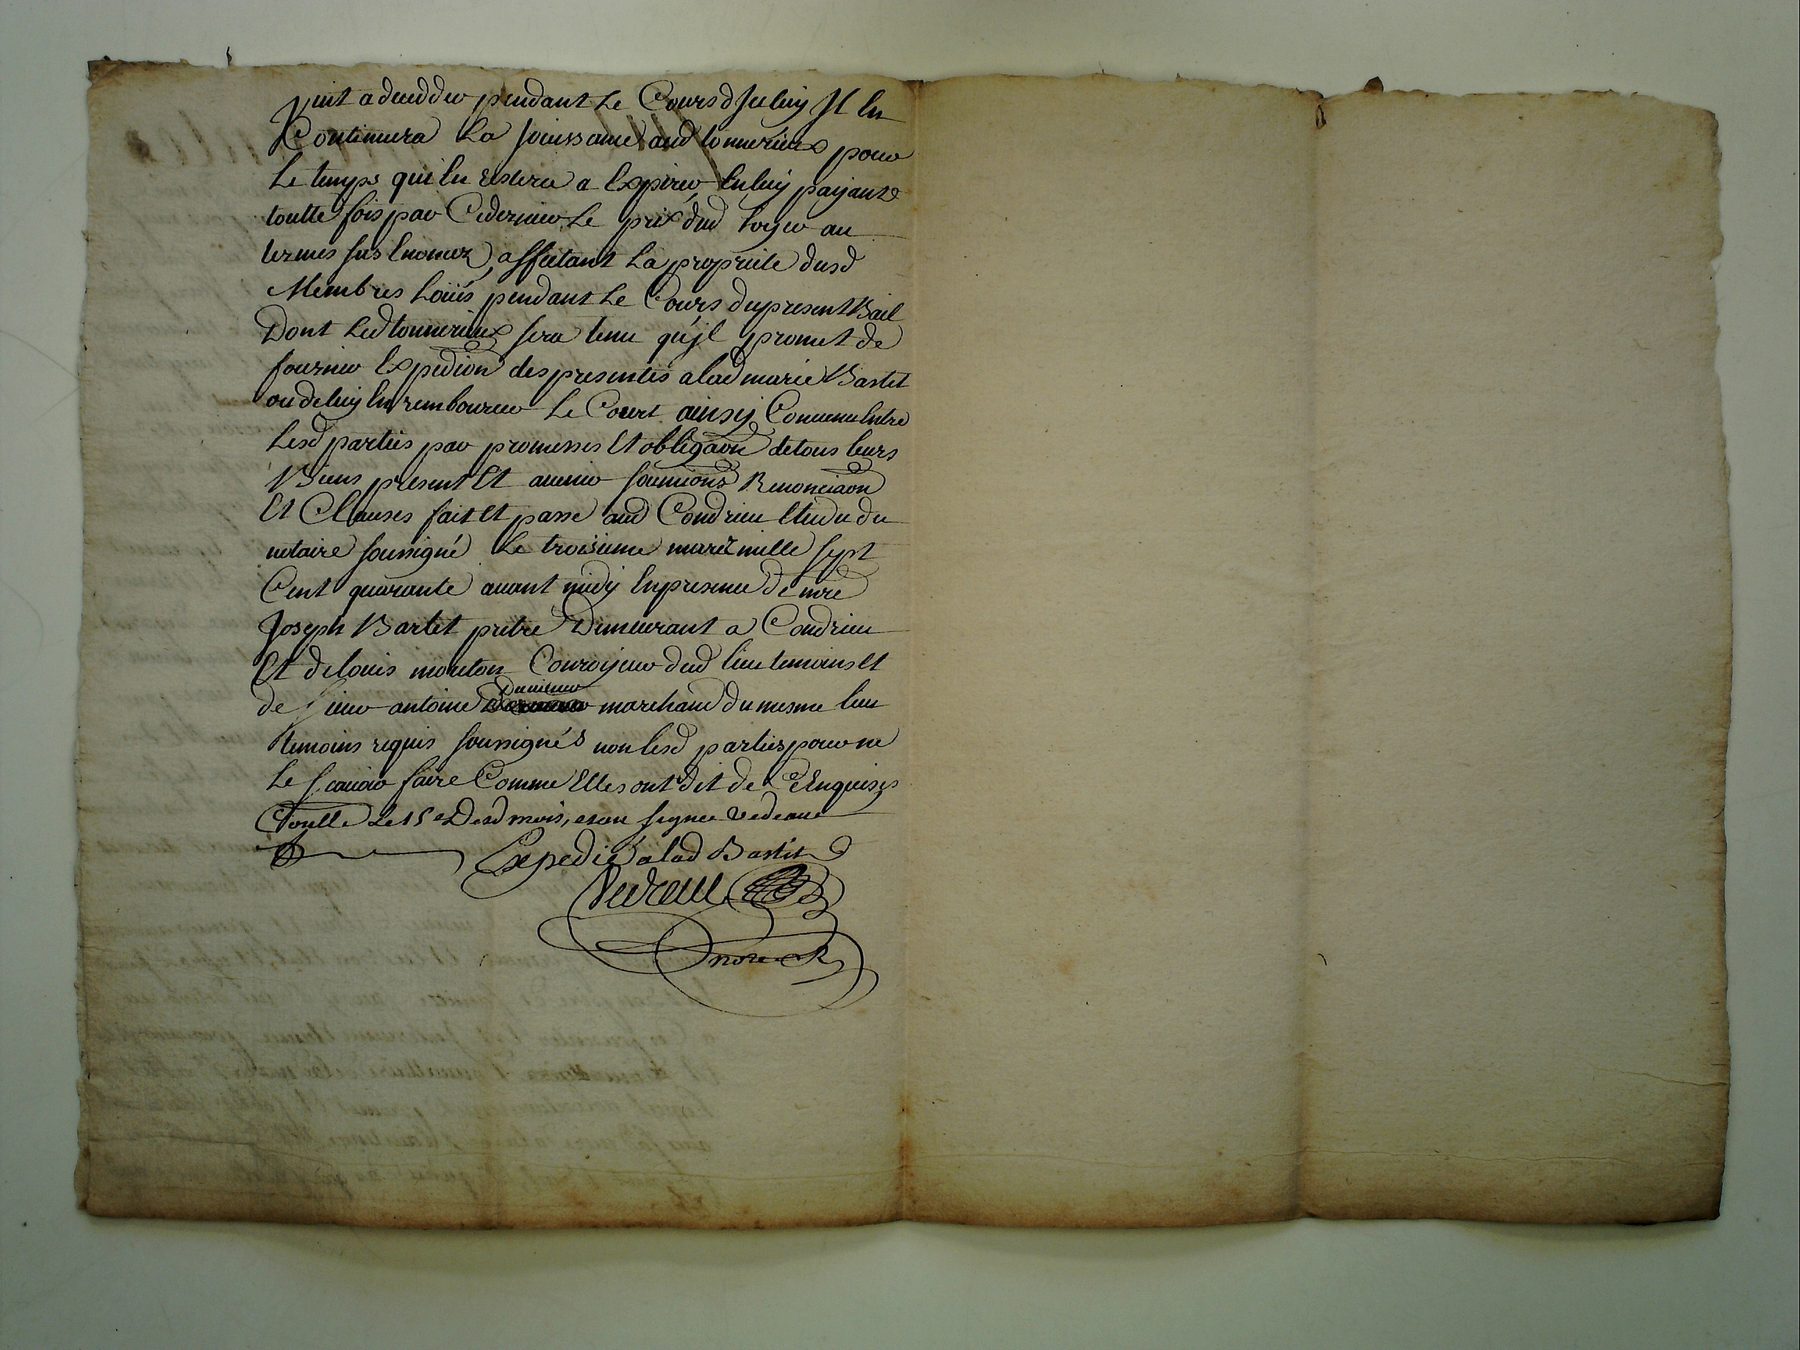 vint a decedder pendant le Cours dJceluy Jl en
Continuera la Jouissance aud tonnerieux pour
le temps qui en restera a Expirer en luy payant
toutte fois par Cedernier le prix dud loyer au
termes sus Enoncez, affectant la propriete dusd
Membres loüés pendant le Cours dupresent Bail
Dont led tonnerieux sera tenu qu'jl promet de
fournir Expedion des presentes a lad marie Bastet
ou de luy en rembourcer le Court ainsy Convenu Entre
Lesd parties par promesses Et obligaon de tous leurs
Biens present Et avenir soumions Renonciaon
Et Clauses fait Et passe aud Condrieu Etude du
notaire soussigné le troisieme marz mille sept
Cent quarante avant midy En presence de mre
Joseph Bartet pretre Demeurant a Condrieu
Et de louis mouton Couroyeur dud lieu temoins Et
de sieur antoine marchand du mesme lieu
temoins requis soussignés non lesd parties pour ne
le scavoir faire Comme Elles ont dit de ce Enquises
Conlle le 15e Desd mois, et an signee Vedeau
Expedié a lad Bastet
Vedeau
nore R